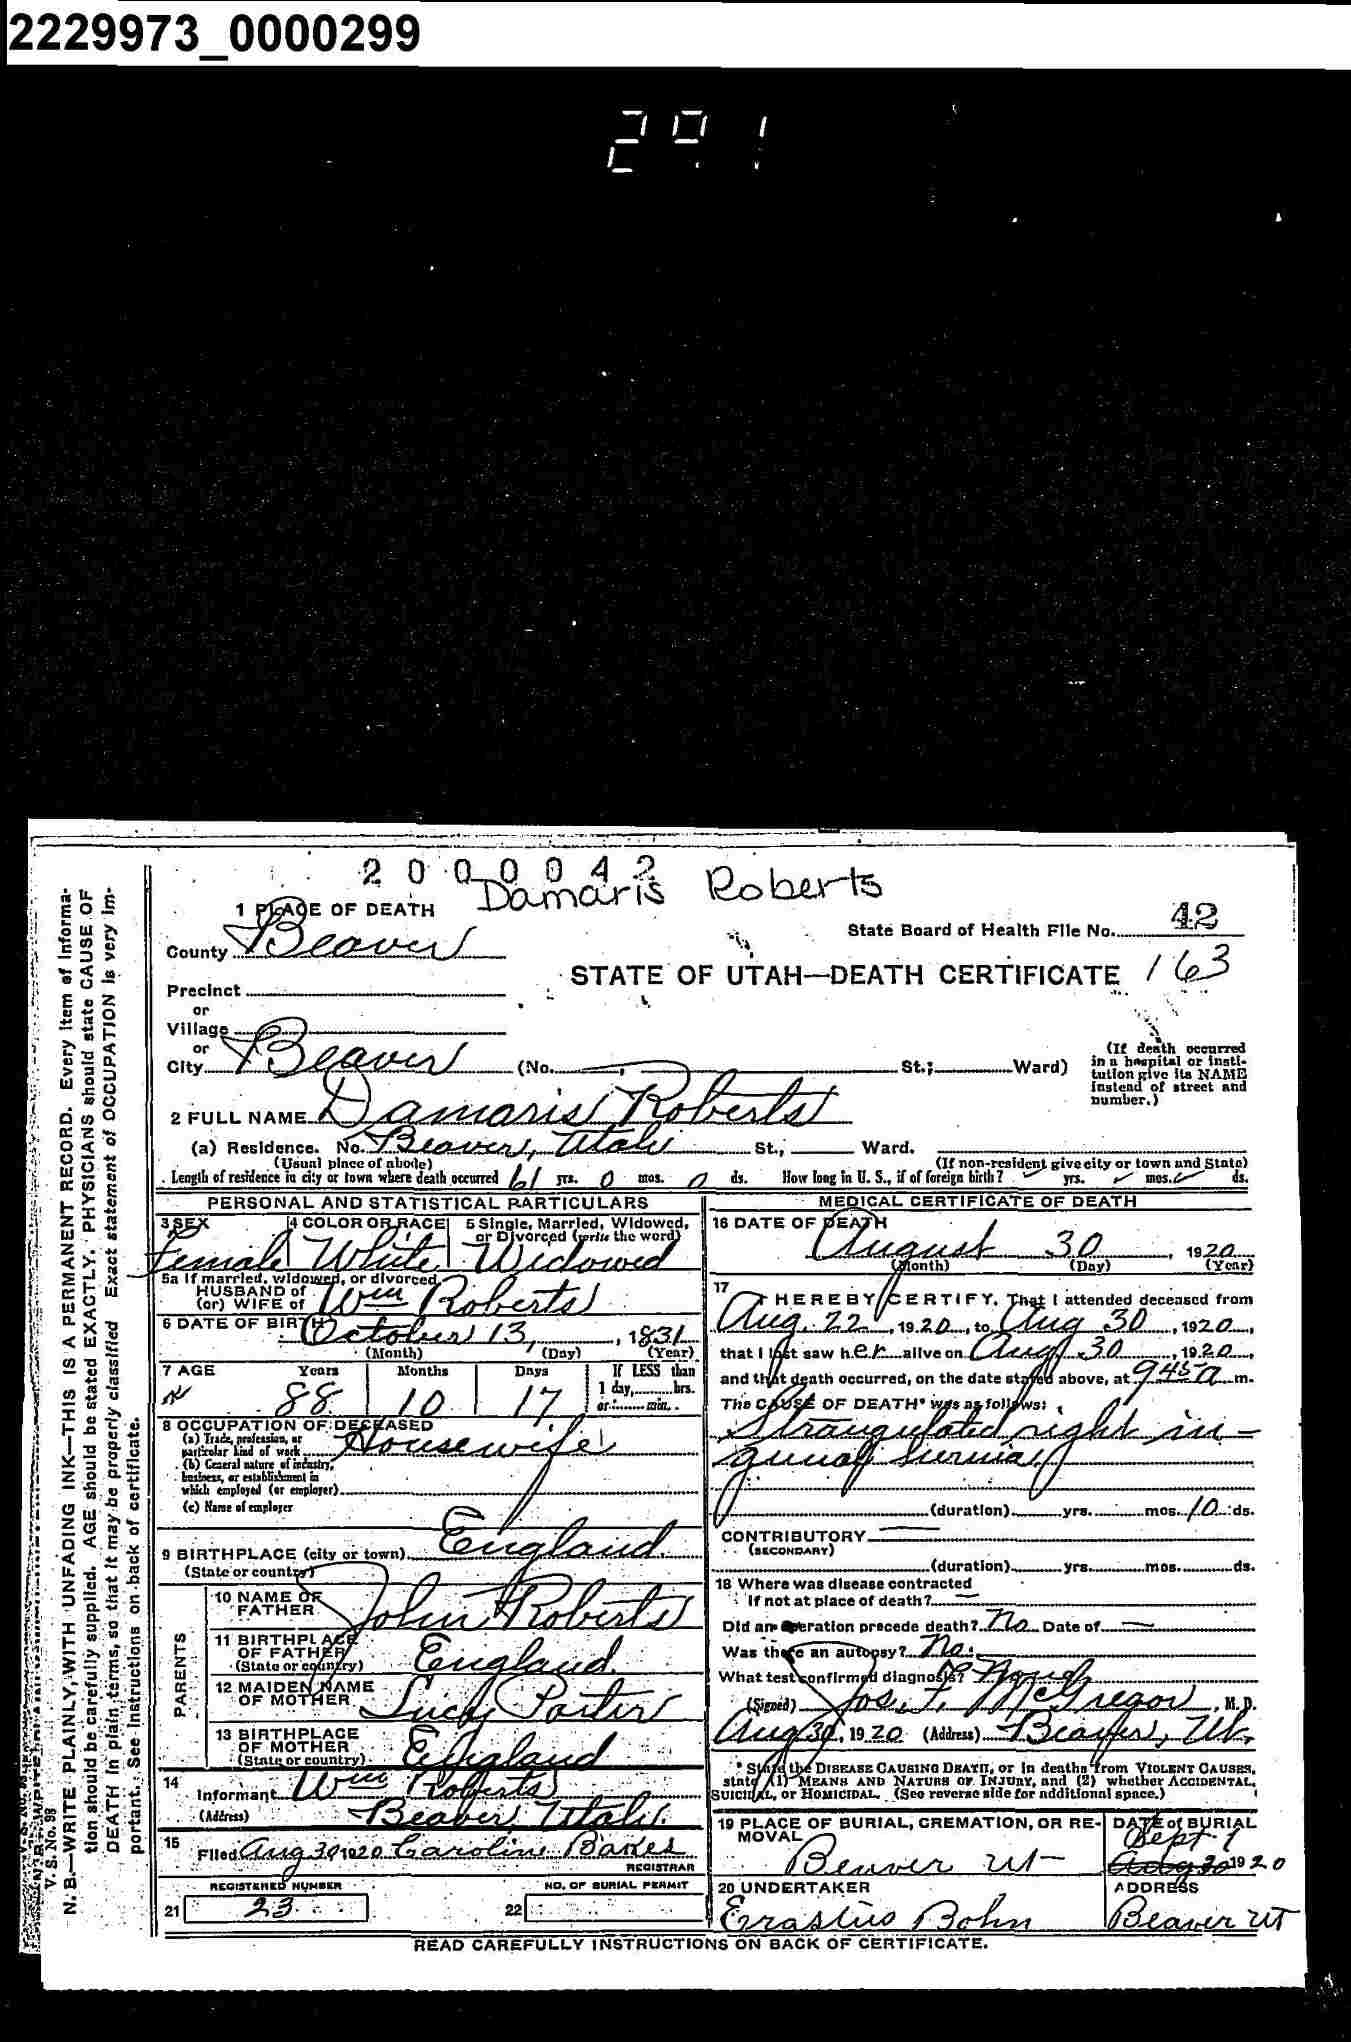 2229973_0000299
291
2 0 0 0 0 4 2
Damaris Roberts
1 PLACE OF DEATH
State Board of Health File No. 42
County Beaver
STATE OF UTAH—DEATH CERTIFICATE 163
Precinct
or
Village
or
City Beaver (No. St.; Ward)
(If death occurred in a hospital or institution give its NAME instead of street and number.)
2 FULL NAME Damaris Roberts
(a) Residence. No. Beaver, Utah St., Ward.
(Usual place of abode) (If non-resident give city or town and State)
Length of residence in city or town where death occurred 61 yrs. 0 mos. 0 ds. How long in U. S., if of foreign birth? yrs. mos. ds.
PERSONAL AND STATISTICAL PARTICULARS
3 SEX 4 COLOR OR RACE 5 Single, Married, Widowed, or Divorced (write the word)
Female White Widowed
5a If married, widowed, or divorced
HUSBAND of
(or) WIFE of Wm Roberts
6 DATE OF BIRTH October 13, 1831
(Month) (Day) (Year)
7 AGE Years Months Days If LESS than
1 day, hrs.
or min.
88 10 17
8 OCCUPATION OF DECEASED
(a) Trade, profession, or
particular kind of work Housewife
(b) General nature of industry,
business, or establishment in
which employed (or employer)
(c) Name of employer
9 BIRTHPLACE (city or town) England
(State or country)
PARENTS
10 NAME OF
FATHER John Roberts
11 BIRTHPLACE
OF FATHER England
(State or country)
12 MAIDEN NAME
OF MOTHER Lucy Porter
13 BIRTHPLACE
OF MOTHER England
(State or country)
14
Informant Wm Roberts
(Address) Beaver, Utah.
15
Filed Aug 30 1920 Caroline Bakes
REGISTRAR
REGISTERED NUMBER NO. OF BURIAL PERMIT
21 23 22
MEDICAL CERTIFICATE OF DEATH
16 DATE OF DEATH
August 30, 1920
(Month) (Day) (Year)
17
I HEREBY CERTIFY, That I attended deceased from
Aug. 22, 1920, to Aug 30, 1920,
that I last saw her alive on Aug 30, 1920,
and that death occurred, on the date stated above, at 9 45 a m.
The CAUSE OF DEATH* was as follows:
Strangulated right in-
guinal hernia
(duration) yrs. mos. 10 ds.
CONTRIBUTORY
(SECONDARY)
(duration) yrs. mos. ds.
18 Where was disease contracted
if not at place of death?
Did an operation precede death? No Date of
Was there an autopsy? No.
What test confirmed diagnosis?
(Signed) Jos. F. McGregor, M. D.
Aug 30, 1920 (Address) Beaver, Ut.
* State the DISEASE CAUSING DEATH, or in deaths from VIOLENT CAUSES,
state (1) MEANS AND NATURE OF INJURY, and (2) whether ACCIDENTAL,
SUICIDAL, or HOMICIDAL. (See reverse side for additional space.)
19 PLACE OF BURIAL, CREMATION, OR RE-
MOVAL
Beaver Ut
DATE of BURIAL
Sept 1
Aug 30 1920
20 UNDERTAKER ADDRESS
Erastus Bohn Beaver UT
READ CAREFULLY INSTRUCTIONS ON BACK OF CERTIFICATE.
V. S. No. 98
N. B.—WRITE PLAINLY, WITH UNFADING INK—THIS IS A PERMANENT RECORD. Every item of informa-
tion should be carefully supplied. AGE should be stated EXACTLY. PHYSICIANS should state CAUSE OF
DEATH in plain terms, so that it may be properly classified Exact statement of OCCUPATION is very im-
portant. See instructions on back of certificate.